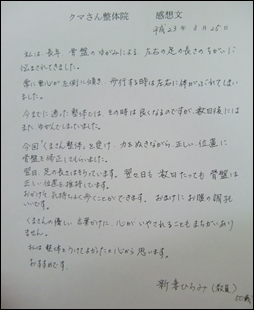 クマさん整体院　感想文
平成23年 8月25日
私は、長年、骨盤のゆがみによる、左右の足の長さのちがいに
悩まされてきました。
常に重心が左側に傾き、歩行する時は左右に体がぶれてしまい
ました。
今までに通った整体では、その時は良くなるのですが、数日後には
また、ゆがんでしまっていました。
今回「くまさん整体」を受け、力をぬきながら、正しい位置に
骨盤を矯正してもらいました。
翌日、足の長さはそろっています。翌々日も 数日たっても 骨盤は
正しい位置を維持しています。
おかげで、気持ちよく歩くことができます。おまけにお腹の調子も
いいです。
くまさんの優しい言葉かけに、心がいやされることもまちがいあり
ません。
私は整体をうけてよかったと心から思います。
おすすめです。
新妻ひろみ（教員）
50歳